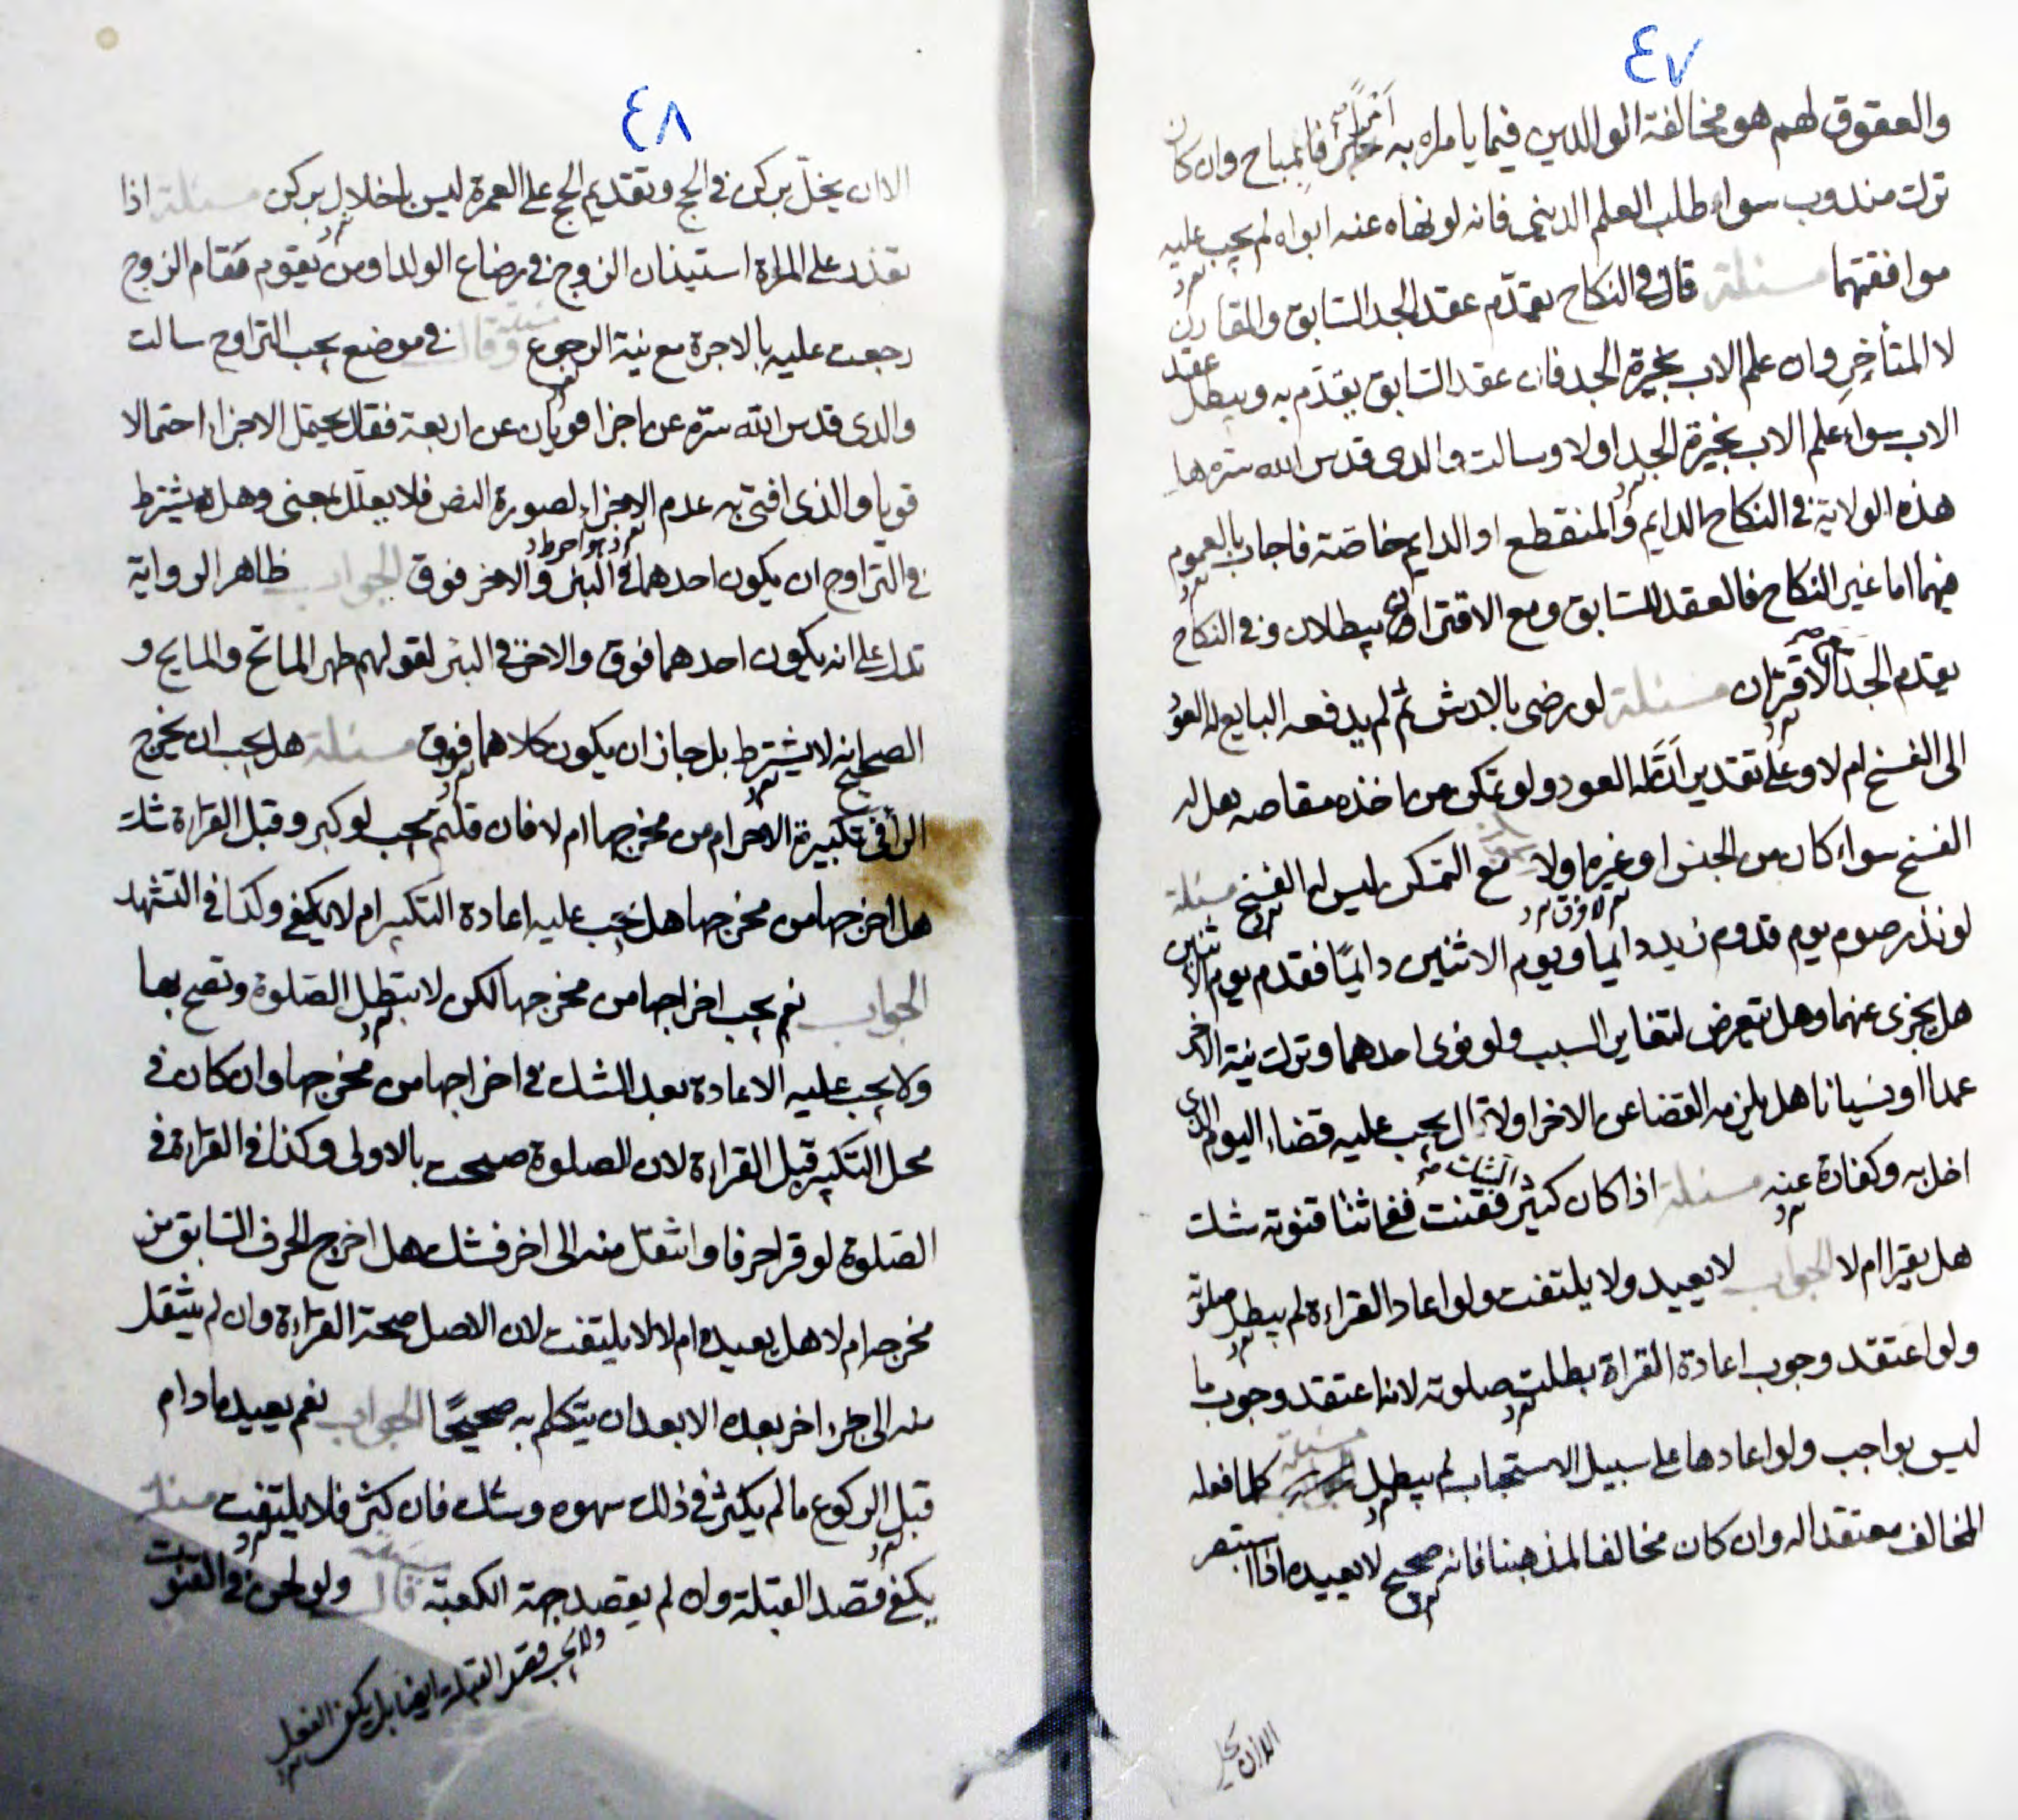 ٤٧
والعقوق لهم هو مخالفة الوالدين فيما يامراه به فانه مباح وان كان
ترك مندوب سواء طلب العلم الديني فانه لو نهاه عنه ابواه لم يجب عليه
موافقتهما مسئلة قال في النكاح يقدّم عقد الجد السابق والمقارن
لا المتأخر وان علم الاب بخيرة الجد فان عقد السابق يقدّم به ويبطل عقد
الاب سواء علم الاب بخيرة الجد اولا وسالت والدى قدس الله سره هل
هذه الولاية في النكاح الدايم والمنقطع او الدايم خاصة فاجاب بالعموم
فيهما اما غير النكاح فالعقد للسابق ومع الاقتران يبطلان وفي النكاح
يقدم الجد الاقتران مسئلة لو رضى بالارش ثم لم يدفعه البايع له العود
الى الفسخ ام لا وعلى تقدير ان له العود ولو تمكن من اخذه مقاصه هل له
الفسخ سواء كان من الجنس او غيره اولا مع التمكن ليس له الفسخ مسئلة
لا فرق
لو نذر صوم يوم قدوم زيد دايما ويوم الاثنين دايمًا فقدم يوم الاثنين
هل يجزى عنهما وهل يتعرض لتغاير السبب ولو نوى احدهما وترك نية الاخر
عمدا او نسيانا هل يلزمه القضا عن الاخر اولا قال يجب عليه قضاء اليوم الذى
اخل به وكفارة عنه مسئلة اذا كان كثير الشك فقنت ففي اثنا قنوته شك
هل يقرا ام لا الجواب لا يعيد ولا يلتفت ولو اعاد القراءة لم يبطل صلوته
ولو اعتقد وجوب اعادة القراة بطلت صلوته لانه اعتقد وجوب ما
ليس بواجب ولو اعادها على سبيل الاستحباب لم يبطل مسئلة كلما فعله
المخالف معتقدا له وان كان مخالفا لمذهبنا فانه صحيح لا يعيده اذا استبصر
الا ان يخل
٤٨
الا ان يخلّ بركن في الحج وتقديم الحج على العمرة ليس باخلال بركن مسئلة اذا
تعذر على المراة استيذان الزوج في رضاع الولد او من يقوم مقام الزوج
رجعت عليه بالاجرة مع نية الرجوع مسئلة وقال في موضع يجب التراوح سالت
والدى قدس الله سره عن اجزا قويان عن اربعة فقال يحتمل الاجزاء احتمالا
قويا والذى افتى به عدم الاجزاء لصورة النص فلا يعلل بمعنى وهل يشترط
في التراوح ان يكون احدهما في البئر والاخر فوق الجواب ظاهر الرواية
تدل على انه يكون احدهما فوق والاخر في البئر لقولهم طهر الماتح والمايح و
الصحيح انه لا يشترط بل جاز ان يكون كلاهما فوق مسئلة هل يجب ان يخرج
الرأ في تكبيرة الاحرام من مخرجها ام لا فان قلتم يجب لو كبر وقبل القراءة شك
هل اخرجها من مخرجها هل يجب عليه اعادة التكبير ام لا يكفي وكذا في التشهد
الجواب نعم يجب اخراجها من مخرجها لكن لا تبطل الصلوة وتصح بها
ولا يجب عليه الاعادة بعد الشك في اخراجها من مخرجها وان كان في
محل التكبير قبل القراءة لان الصلوة صحت بالاولى وكذا في القراءة في
الصلوة لو قرا حرفا وانتقل منه الى اخر فشك هل اخرج الحرف السابق من
مخرجه ام لا هل يعيده ام لا لا يلتفت لان الاصل صحة القراءة وان لم ينتقل
منه الى حرف اخر بعده الا بعد ان يتكلم به صحيحًا الجواب نعم يعيده مادام
قبل الركوع ما لم يكثر في ذلك سهوه وشك فان كثر فلا يلتفت مسئلة
يكفي قصد القبلة وان لم يقصد جهة الكعبة مسئلة قال ولو لحن في القنوت
ولا يجب قصد القبلة ايضا بل يكفى الفعل